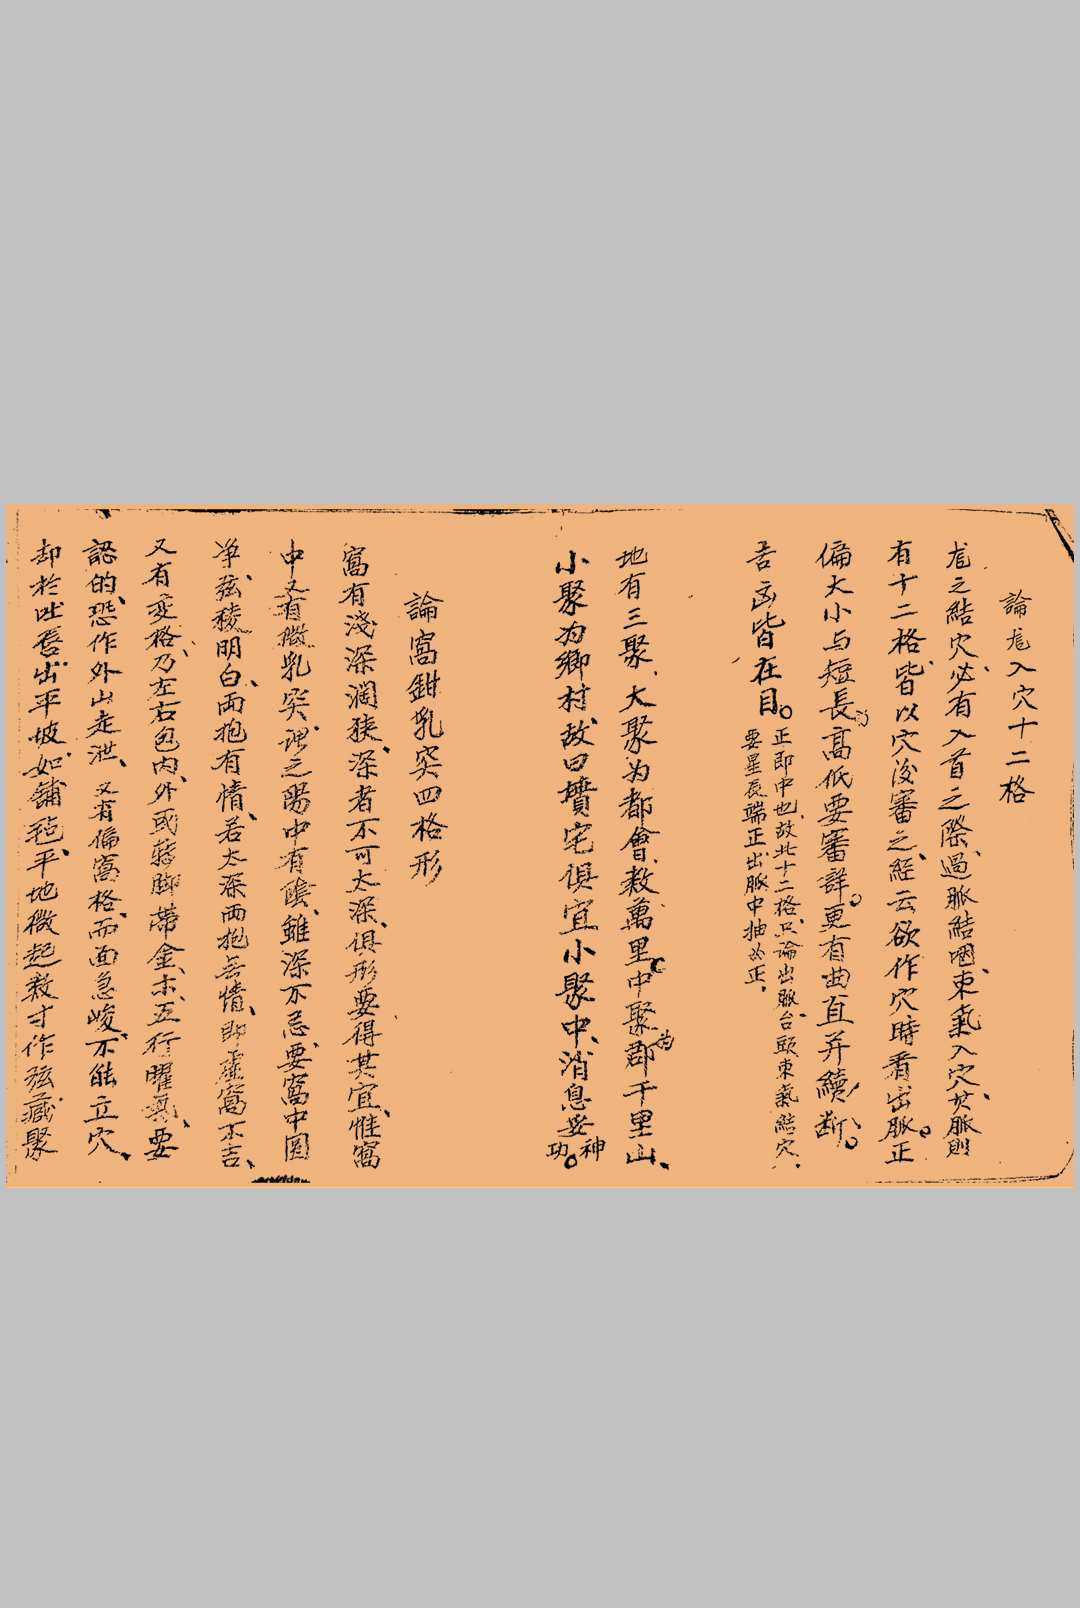 論龙入穴十二格
龙之結穴、必有入首之際、過脈結咽、束氣入穴、其脈則
有十二格、皆以穴後審之、經云欲作穴時看出脈。正
偏大小与短長。高低要審詳。更有曲直并續断。
吉凶皆在目。
正即中也、故此十二格、只論出脈、台頭束氣結穴、
要星辰端正出脈中抽為正、
地有三聚、大聚为都會、数萬里。中聚为郡千里山、
小聚为鄉村、故曰墳宅俱宜小聚中、消息妥神功。
論窩鉗乳突四格形
窩有淺深濶狹、深者不可太深、俱形要得其宜、惟窩
中又有微乳突、謂之陽中有陰、雖深不忌、要窩中圓
净弦稜明白、兩抱有情、若太深兩抱無情、即虛窩不吉、
又有変格、乃左右包內、外或轉脚帶金、木、五行曜氣、要
認的、恐作外山走泄、又有偏窩格、而面急峻、不能立穴、
却於吐唇出平坡、如鋪毡、平地微起数寸作弦藏聚